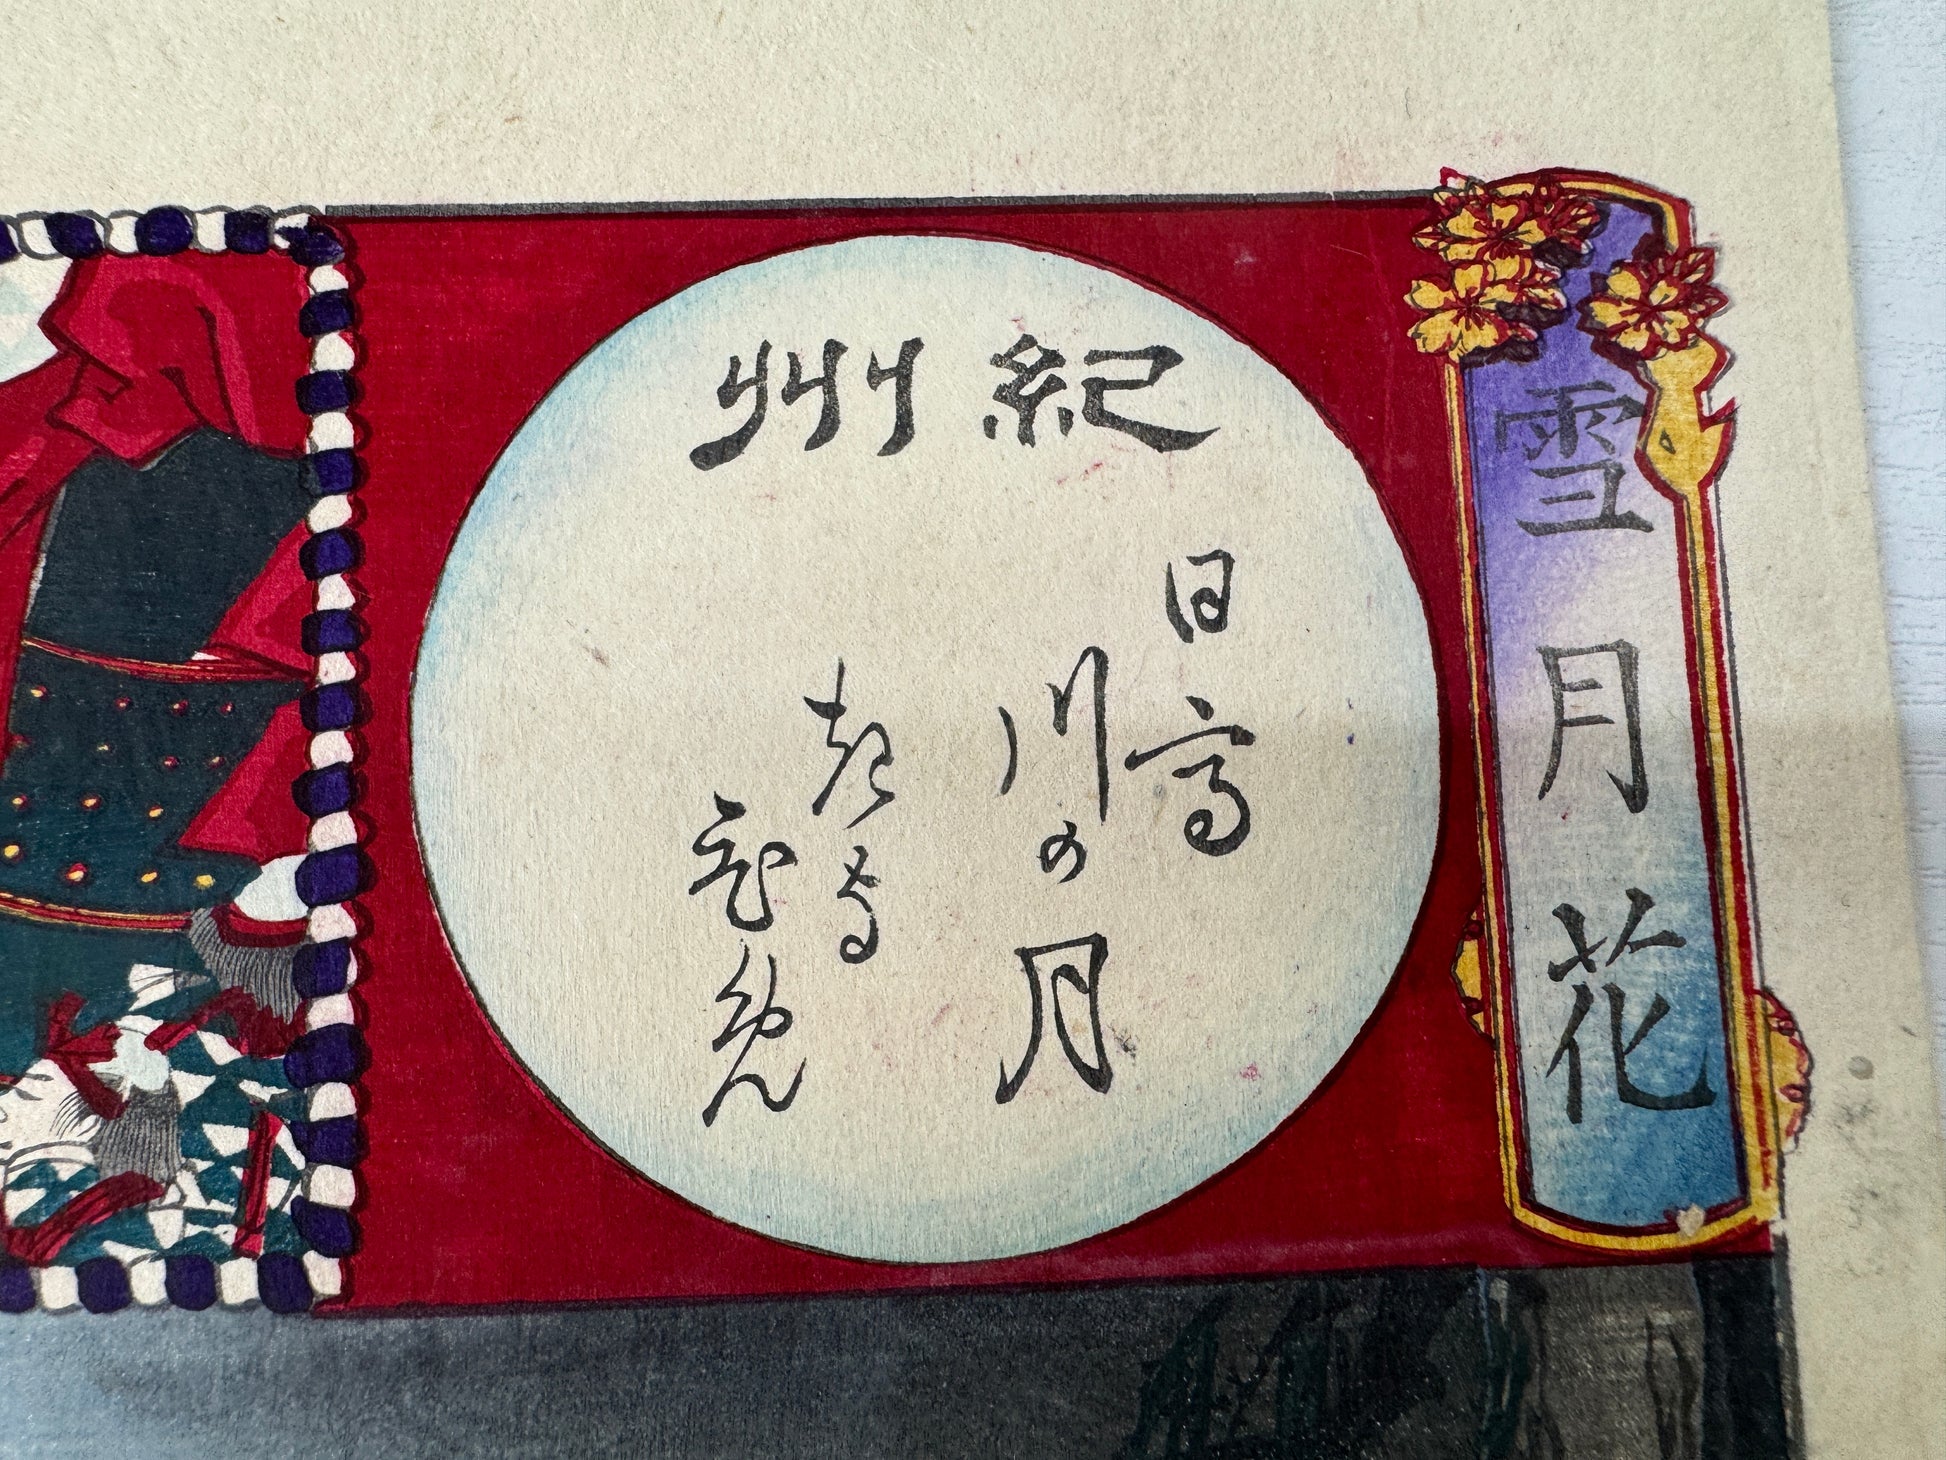 雪月花
紀州
日高
川の月